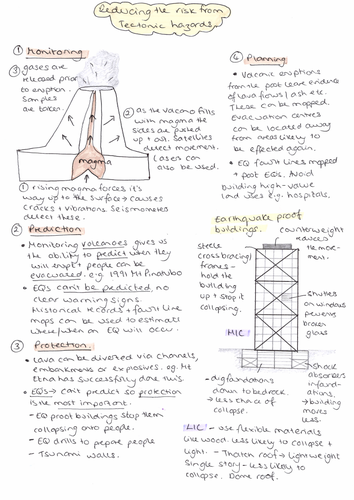 Reducing the risk from
Tectonic hazards.
① Monitoring
③ gases are
released prior
to eruption.
Samples
are taken.
② As the volcano fills
with magma the
sides are pushed
up + out. Satellites
detect movement.
Lasers can
also be used.
magma
① rising magma forces it's
way up to the surface → causes
cracks + vibrations. Seismometers
detect these.
② Prediction
• Monitoring volcanoes gives us
the ability to predict when they
will erupt + people can be
evacuated. e.g. 1991 Mt Pinatubo
• EQs can't be predicted, no
clear warning signs.
Historical records + fault line
maps can be used to estimate
where/when an EQ will occur.
③ Protection.
• Lava can be diverted via channels,
embankments or explosives. eg. Mt
Etna has successfully done this.
• EQs → can't predict so protection
is the most important.
- EQ proof buildings stop them
collapsing onto people.
- EQ drills to prepare people
- Tsunami walls.
④ Planning
• Volcanic eruptions
from the past leave evidence
of lava flows / ash etc.
These can be mapped.
Evacuation centres
can be located away
from areas likely to
be effected again.
• EQ fault lines mapped
+ past EQs. Avoid
building high-value
land uses e.g. hospitals.
Earthquake proof
buildings.
counterweight
reduces
the move-
ment.
steel
cross bracing/
frames -
hold the
building
up + stop it
collapsing.
HIC
shutters
on windows
prevents
broken
glass
shock
absorbers
in found-
ations.
→ building
moves
less.
- dig foundations
down to bedrock.
→ less chance of
collapse.
LIC - use flexible materials
like wood. Less likely to collapse +
light. - Thatch roof → lightweight
Single story - less likely to
collapse. Dome roof.